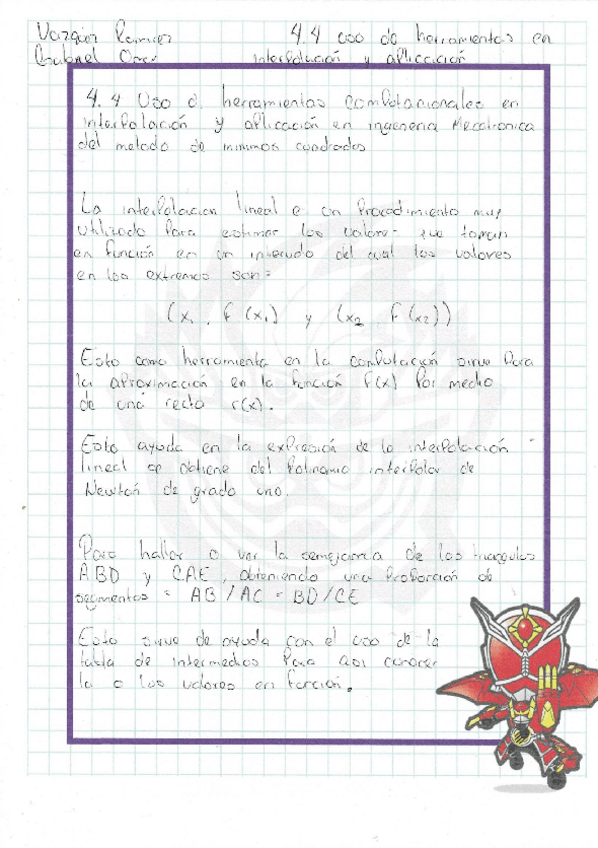 Vazquez Ramirez 4.4 uso de herramientas en
Gabriel Omar interpolación y aplicación
4.4 Uso d herramientas computacionales en
interpolación y aplicación en ingenieria Mecatronica
del metodo de minimos cuadrados
La interpolacion lineal e un procedimiento muy
utilizado para estimar los valores que toman
en función en un intervalo del cual los valores
en los extremos son:
(x₁, f(x₁) y (x₂ f(x₂))
Esto como herramienta en la computación sirve para
la aproximación en la función f(x) por medio
de una recta r(x).
Esto ayuda en la expresión de la interpolación
lineal se obtiene del Polinomio interpolar de
Newton de grado uno.
Para hallar o ver la semejanza de los triangulos
ABD y CAE, obteniendo una proporción de
segmentos = AB/AC = BD/CE
Esto sirve de ayuda con el uso de la
tabla de intermedios para asi conocer
la o los valores en función.